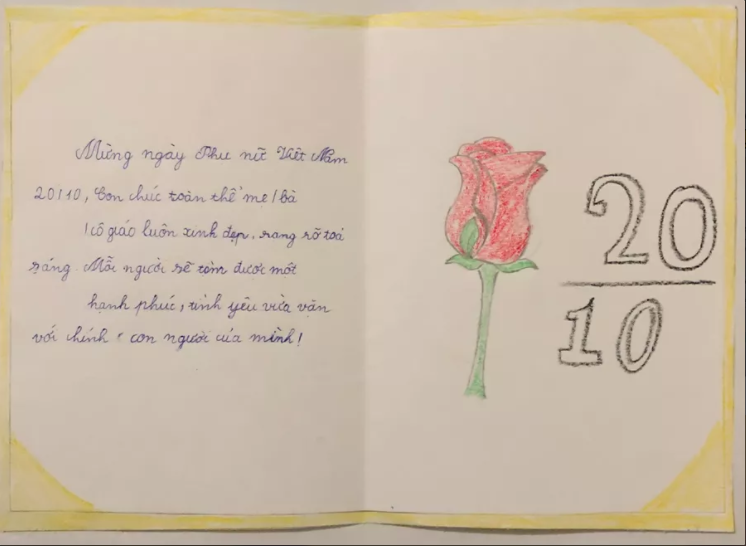 Mừng ngày Phụ nữ Việt Nam
20/10, Con chúc toàn thể mẹ/bà
/cô giáo luôn xinh đẹp, rạng rỡ toả
sáng. Mỗi người sẽ tìm được một
hạnh phúc, tình yêu vừa vặn
với chính con người của mình!
20
10